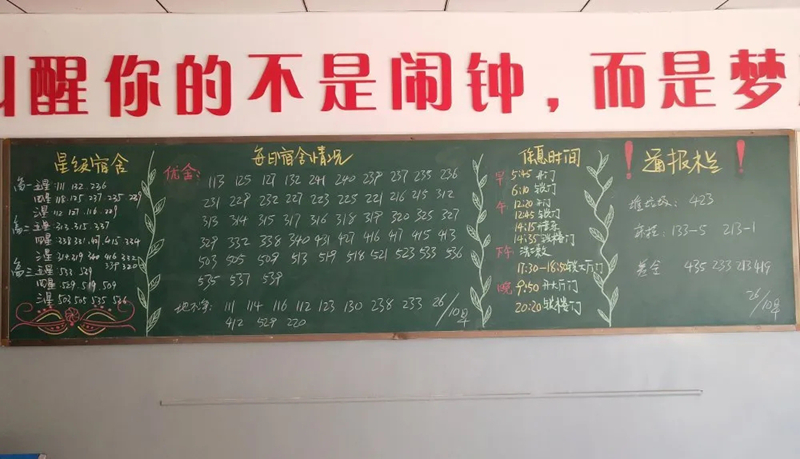 醒你的不是闹钟，而是梦
星级宿舍
高一 五星：111 132 236
四星：118 125 237 235 229
三星：112 127 116 209
高二 五星：313 315 337
三星：314 319 340 416 332
339 320
高三 五星：533 529
四星：529 519 509
三星：503 505 535 536
每日宿舍情况
优舍：
113 125 127 132 241 240 239 237 235 236
231 229 232 227 223 225 221 216 215 312
313 314 315 317 316 318 319 320 325 327
329 332 338 340 431 427 416 417 415 413
503 505 509 513 519 518 521 523 533 536
535 537 539
地不净：111 114 116 112 123 130 238 233 26/10早
412 529 220
休息时间
早 5:45 开门
6:10 锁门
午 12:20 开门
12:45 锁门
14:15
14:35 锁楼门
下午
17:30-18:50 锁大厅门
晚 9:50 开大厅门
20:20 锁楼门
！通报栏！
堆垃圾：423
床铺：133-5 213-1
435 233 213 419
26/10早